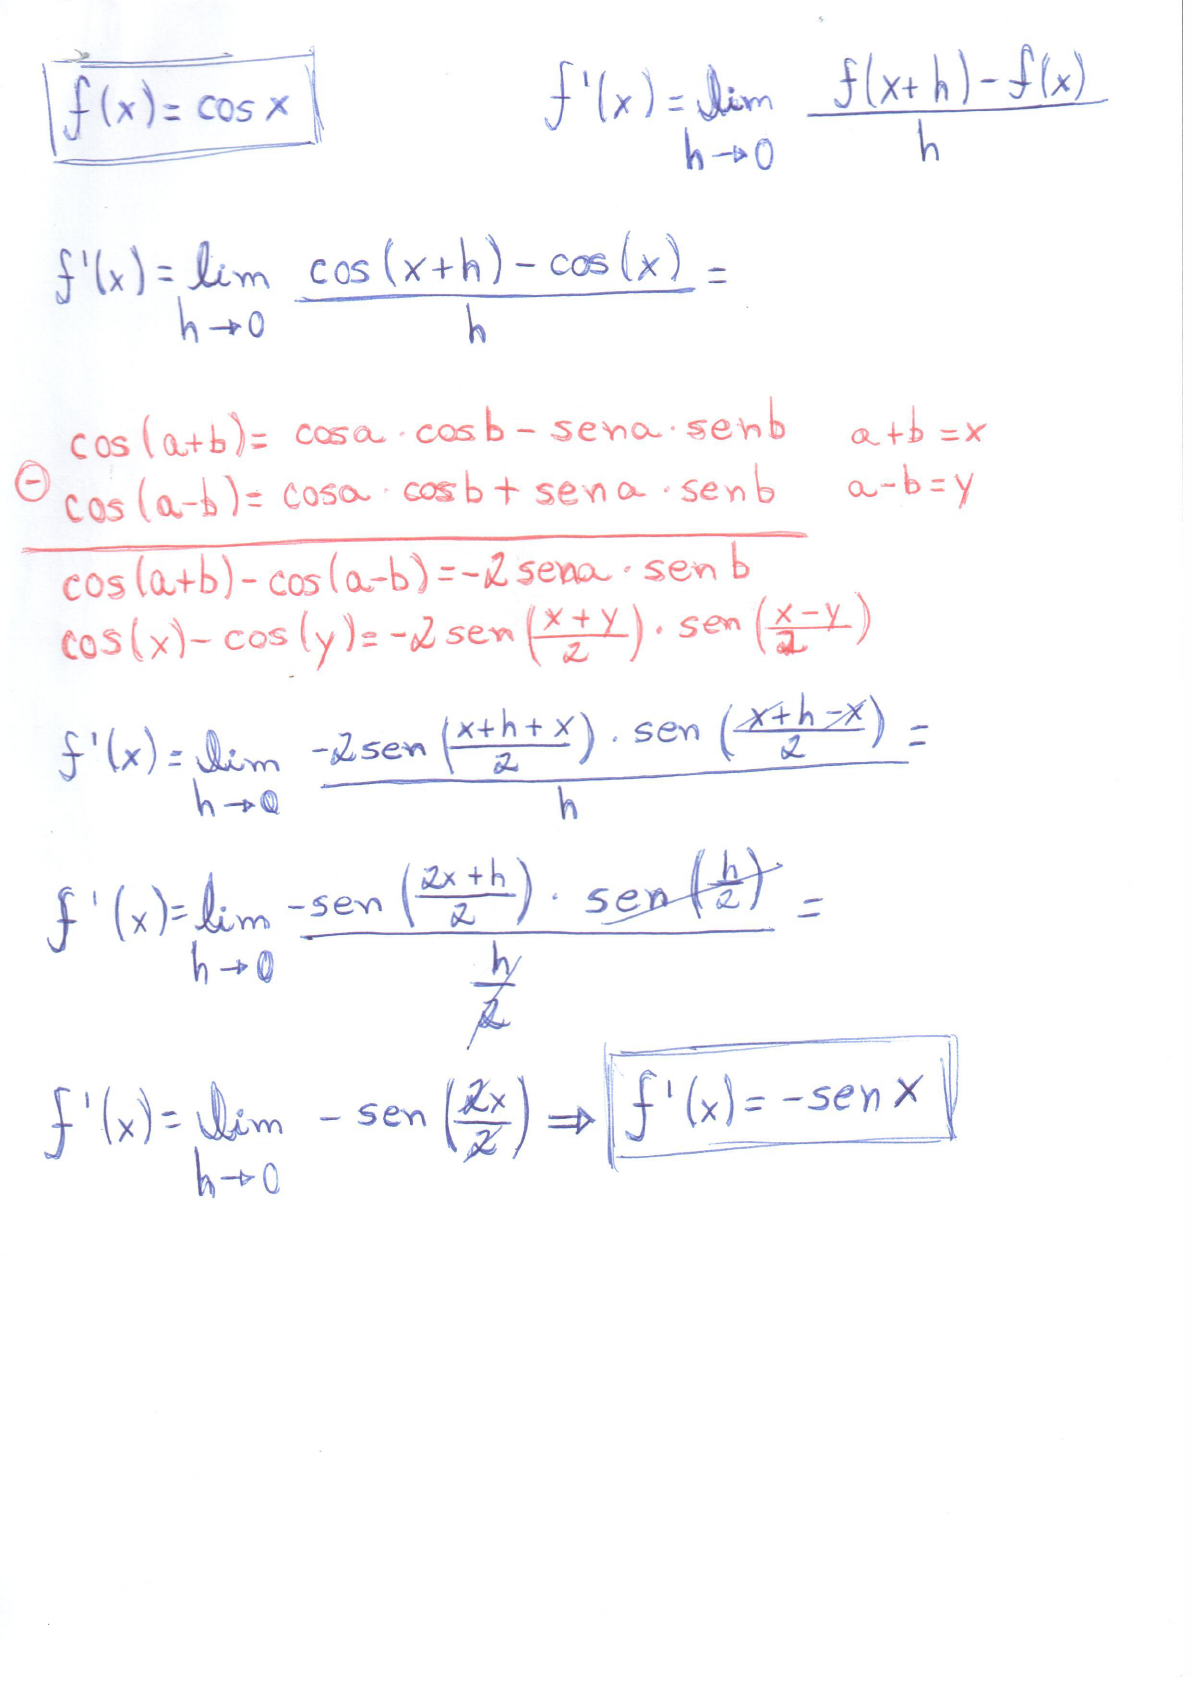 f(x) = cos x    f'(x) = lim h→0 (f(x+h) - f(x))/h
f'(x) = lim h→0 (cos(x+h) - cos(x))/h =
cos(a+b) = cosa · cosb - sena · senb    a+b = x
⊖ cos(a-b) = cosa · cosb + sena · senb    a-b = y
cos(a+b) - cos(a-b) = -2 sena · sen b
cos(x) - cos(y) = -2 sen((x+y)/2) · sen((x-y)/2)
f'(x) = lim h→0 (-2 sen((x+h+x)/2) · sen((x+h-x)/2))/h =
f'(x) = lim h→0 (-sen((2x+h)/2) · sen(h/2))/(h/2) =
f'(x) = lim h→0 - sen(2x/2) ⇒ f'(x) = -sen x